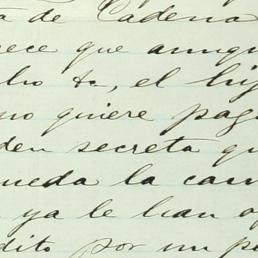 de Cadena
ece que aunqu
lho &a, el hij
no quiere pag
den secreta qu
ueda la cam
ya le han o
dito por un p